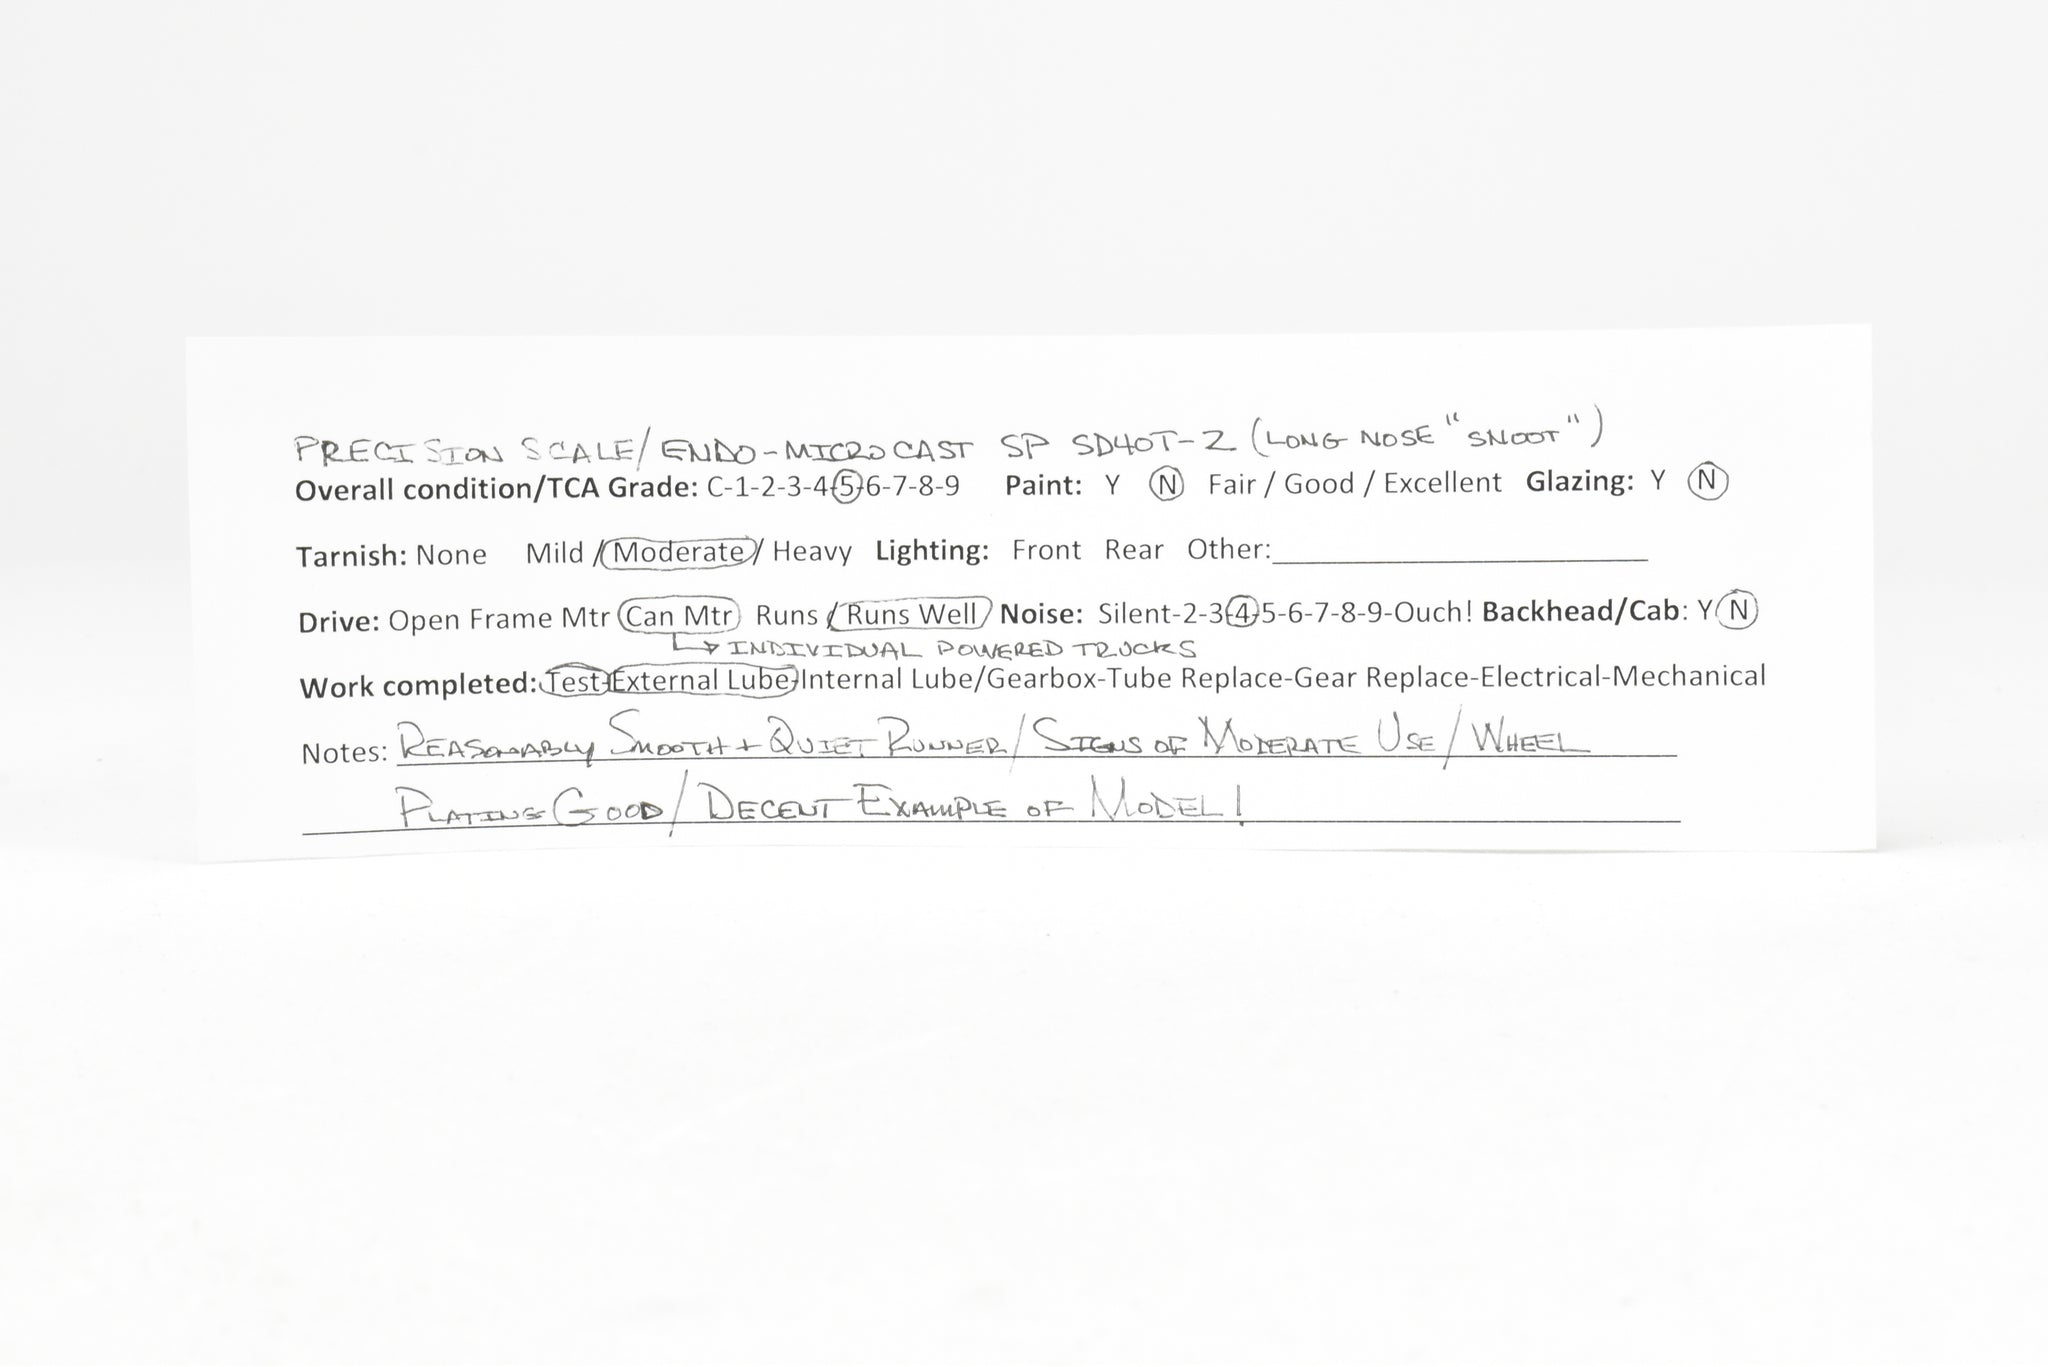 PRECISION SCALE/ENDO-MICROCAST SP SD40T-2 (LONG NOSE "SNOOT")
Overall condition/TCA Grade: C-1-2-3-4-5-6-7-8-9 Paint: Y N Fair / Good / Excellent Glazing: Y N
Tarnish: None Mild / Moderate / Heavy Lighting: Front Rear Other:
Drive: Open Frame Mtr Can Mtr Runs / Runs Well Noise: Silent-2-3-4-5-6-7-8-9-Ouch! Backhead/Cab: Y N
INDIVIDUAL POWERED TRUCKS
Work completed: Test-External Lube-Internal Lube/Gearbox-Tube Replace-Gear Replace-Electrical-Mechanical
Notes: REASONABLY SMOOTH + QUIET RUNNER/SIGNS OF MODERATE USE/WHEEL
PLATING GOOD/DECENT EXAMPLE OF MODEL!